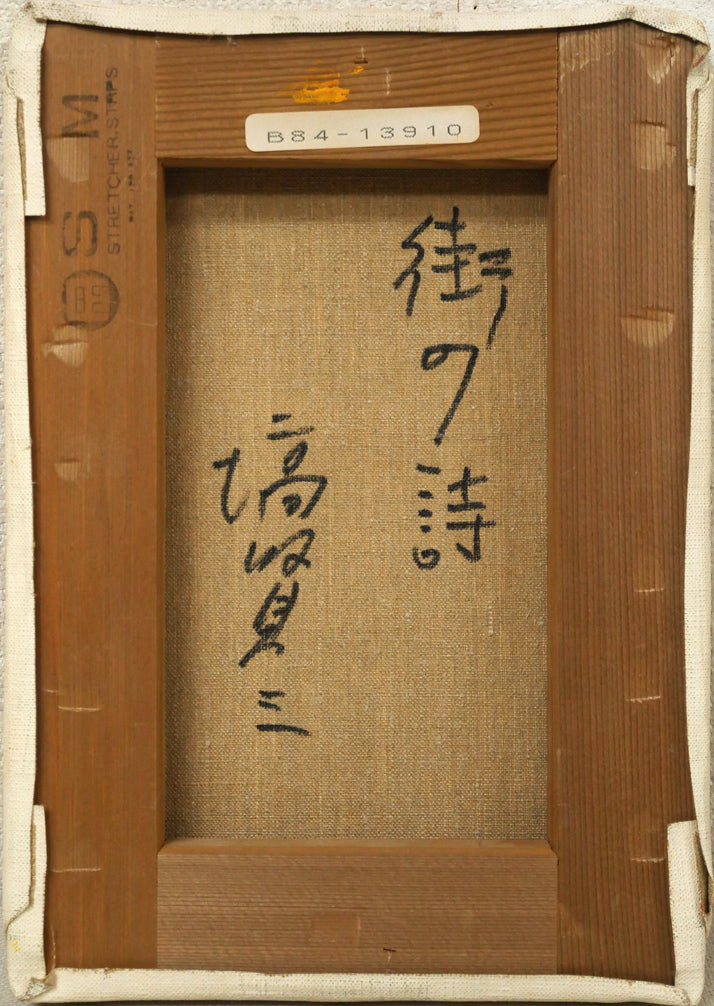 B84-13910
街の詩
塙賢三
SM
STRETCHER.STRPS